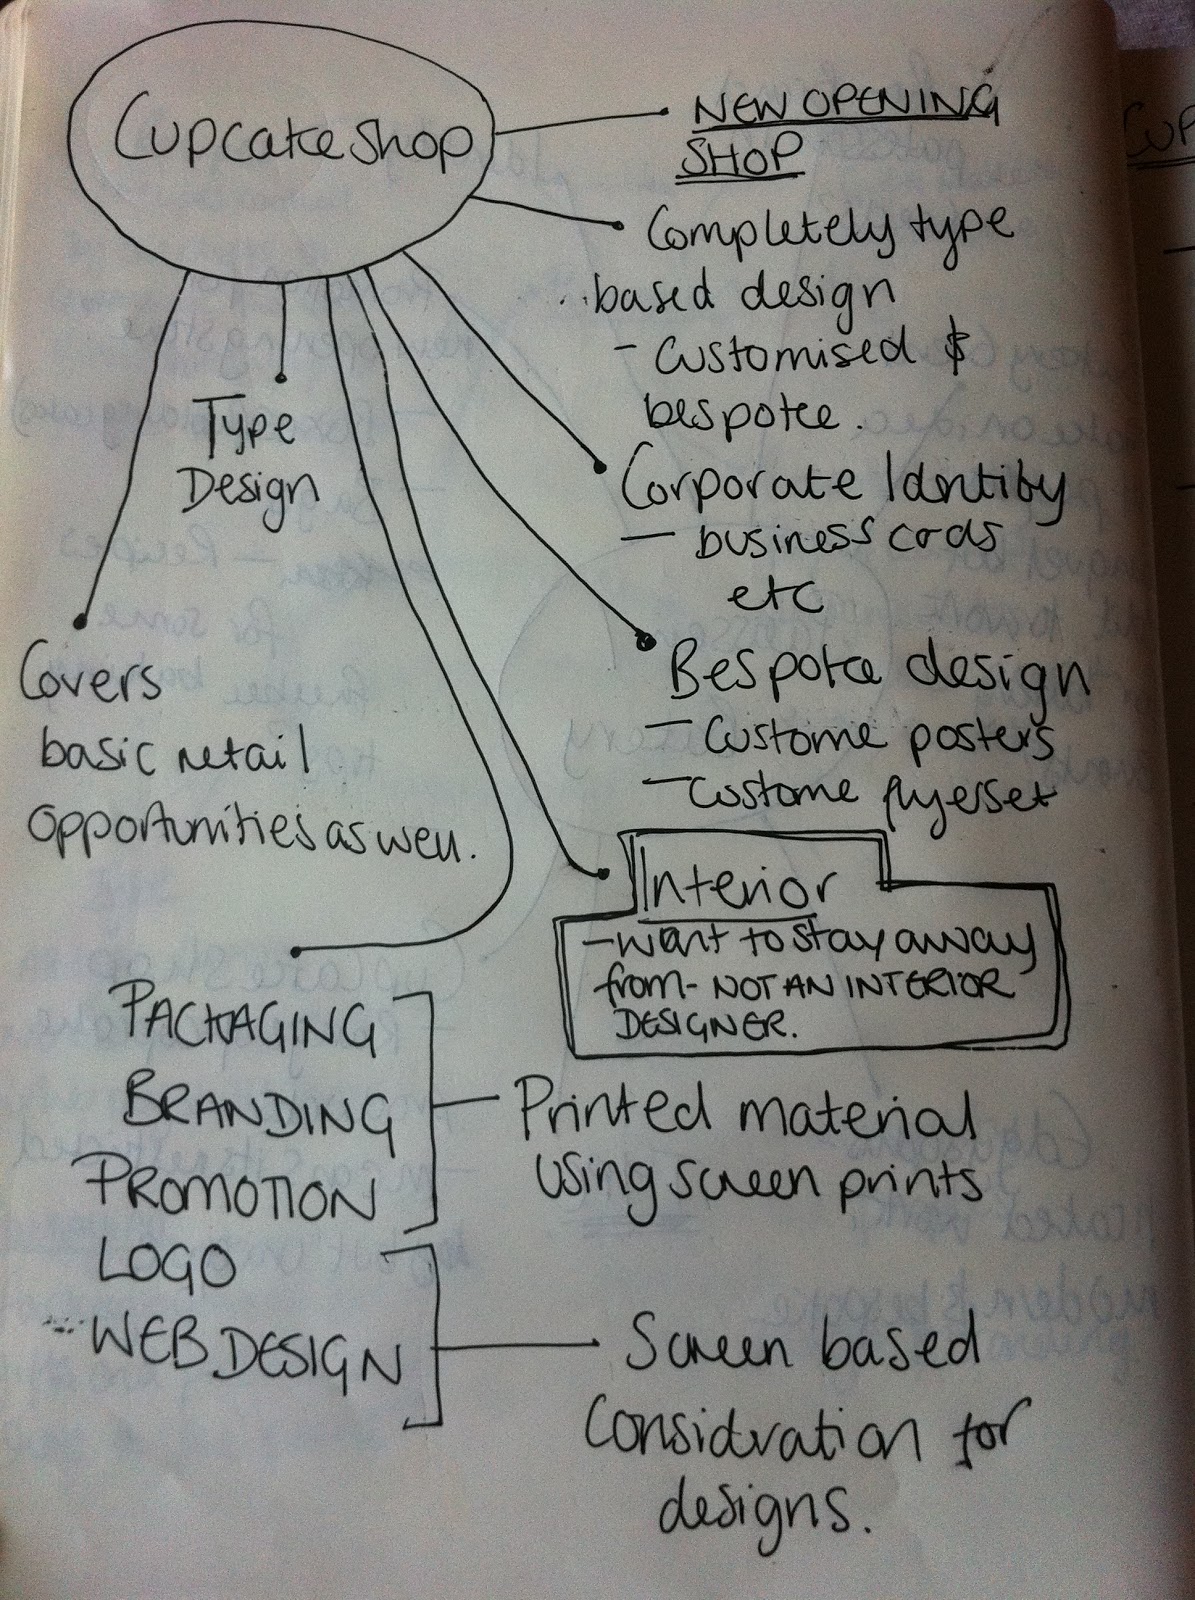 Cupcake shop
NEW OPENING
SHOP
Completely type
based design
- Customised &
bespoke.
Corporate Identity
- business cards
etc
Bespoke design
- Custome posters
- Custome flyers etc
Type
Design
Covers
basic retail
opportunities as well.
Interior
- want to stay away
from - NOT AN INTERIOR
DESIGNER.
PACKAGING
BRANDING
PROMOTION
LOGO
WEB DESIGN
Printed material
using screen prints
Screen based
consideration for
designs.
CUP